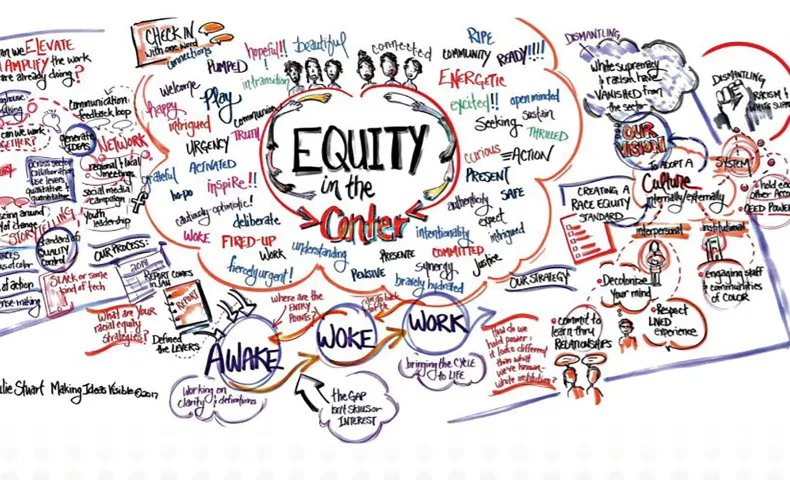 can we ELEVATE
AMPLIFY the work
are already doing?
Communication
feedback loop
can we work
TOGETHER?
generate
IDEAS
NETWORK
regional & local
meetings
social media
campaign
Youth
leadership
Across sector
collaboration
use levers
qualitative +
quantitative
STORYTELLING
standard of
QUALITY
CONTROL
of color
of action
SLACK or some
kind of tech
OUR PROCESS:
2018
REPORT COMES
IN JAN
REPORT
What are your
racial equity
strategies?
Defined
the LEVERS
CHECK IN
with one word
connections
PUMPED
hopeful!!
beautiful
connected
RIPE
COMMUNITY
READY!!!!
Welcome
in transition
ENERGETIC
happy
Play
communion
excited!!
open minded
intrigued
TRUTH
Seeking
Sustain
URGENCY
THRILLED
curious
ACTION
grateful
ACTIVATED
PRESENT
hope
inspire!!
SAFE
authenticity
cautiously optimistic!
deliberate
expect
intentionality
intrigued
WOKE
FIRED-UP
WORK
understanding
PRESENTE
COMMITTED
synergy
Justice
fiercely urgent!
PENSIVE
bravely hydrated
EQUITY
in the
Center
AWAKE
WOKE
WORK
where are the
ENTRY
POINTS?
can go back
Working on
clarity & definitions
the GAP
isn't skills or
INTEREST
bringing the CYCLE
to LIFE
How do we
hold power -
it looks different
than what
we've known -
white institutions?
OUR STRATEGY
commit to
learn thru
RELATIONSHIPS
Decolonize
your mind
Respect
LIVED
experience
interpersonal
institutional
engaging staff
& communities
of COLOR
CREATING A
RACE EQUITY
STANDARD
DISMANTLING
White supremacy
& racism have
VANISHED from
the sector
OUR
VISION
TO ADOPT A
Culture
internally/externally
SYSTEM
DISMANTLING
RACISM &
WHITE
hold each
other
Julie Stuart Making Ideas Visible © 2017